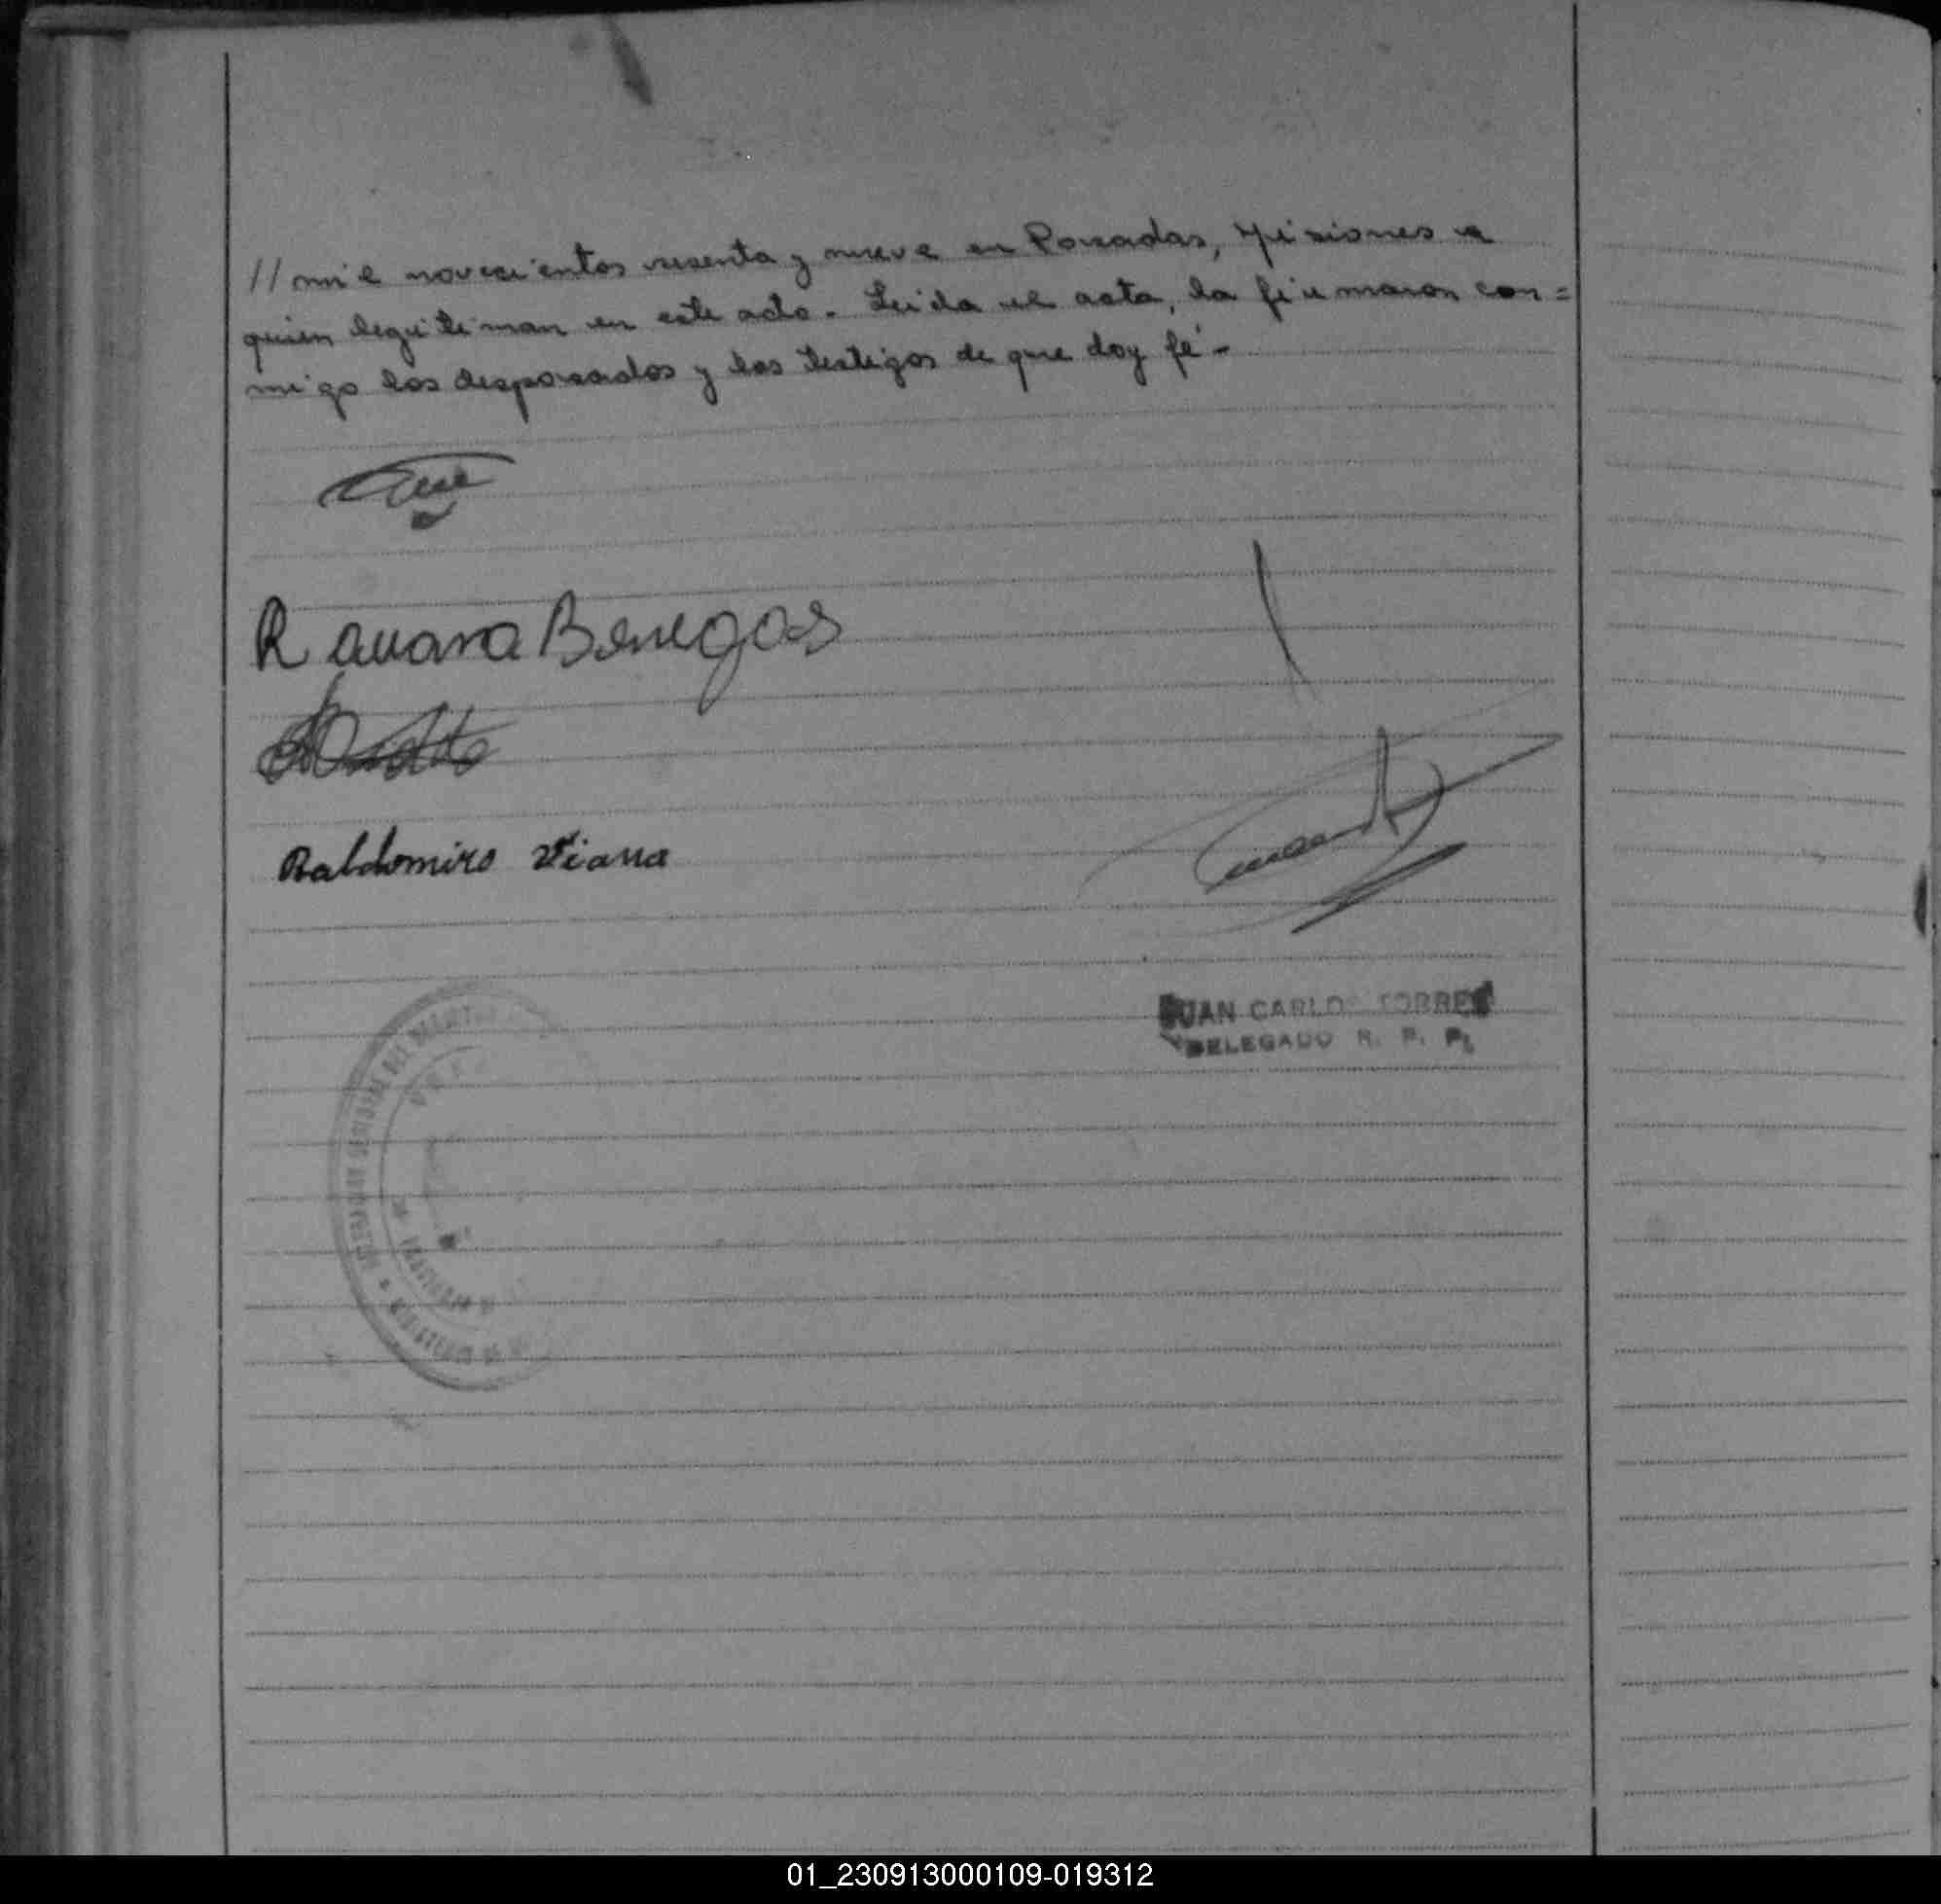 // mil novecientos sesenta y nueve en Posadas, Misiones a
quien legitiman en este acto. Leida el acta, la firmaron con=
migo los desposados y los testigos de que doy fé -
Ramona Benegas
Baldomiro Viana
JUAN CARLOS TORRES
DELEGADO R. P. P.
01_230913000109-019312